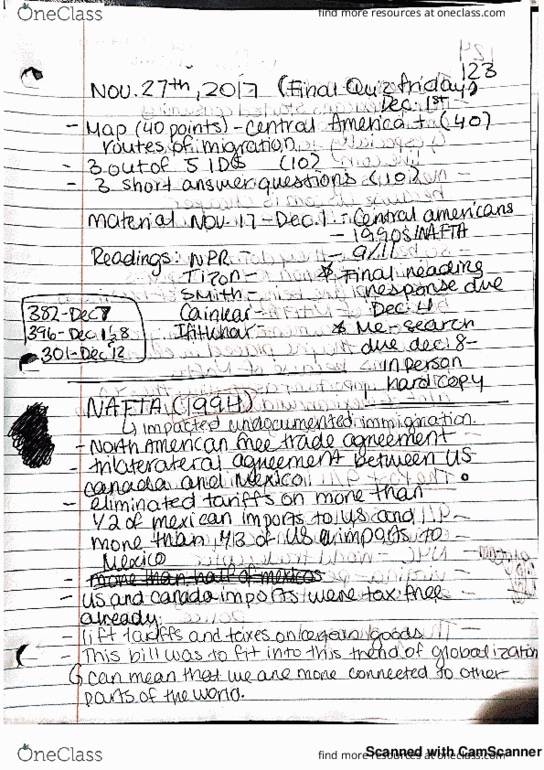 OneClass
find more resources at oneclass.com
123
Nov. 27th, 2017 (Final Quiz friday,
Dec. 1st
- Map (40 points) - Central America + (40)
routes of migration
- 3 out of 5 IDs (10)
- 3 short answer questions (10)
material Nov. 17 - Dec. 1 - Central americans
- 1990s/NAFTA
Readings: NPR - 9/11
Tizon - * Final reading
Smith - response due
382-Dec 7 Cainkar - Dec. 4
396-Dec 1 & 8 Iftikhar - * Me-search
301-Dec 12 due dec 8-
in person
hard copy
NAFTA (1994)
↳ impacted undocumented immigration.
- North American free trade agreement
- trilateral agreement between US
canada and Mexico
- eliminated tariffs on more than
1/2 of mexican imports to US and
more than 1/3 of US imports to
Mexico
- more than half of mexicos
- US and canada imports were tax free
already.
- lift tariffs and taxes on certain goods
- This bill was to fit into this trend of globalization
↳ can mean that we are more connected to other
parts of the world.
OneClass
find more resources at oneclass.com
Scanned with CamScanner